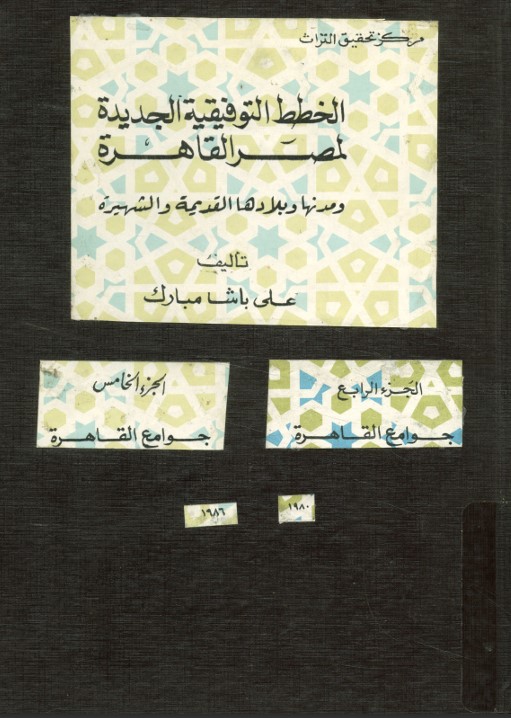 مركز تحقيق التراث
الخطط التوفيقية الجديدة
لمصر القاهرة
ومدنها وبلادها القديمة والشهيرة
تأليف
على باشا مبارك
الجزء الرابع
جوامع القاهرة
الجزء الخامس
جوامع القاهرة
١٩٨٠
١٩٨٦